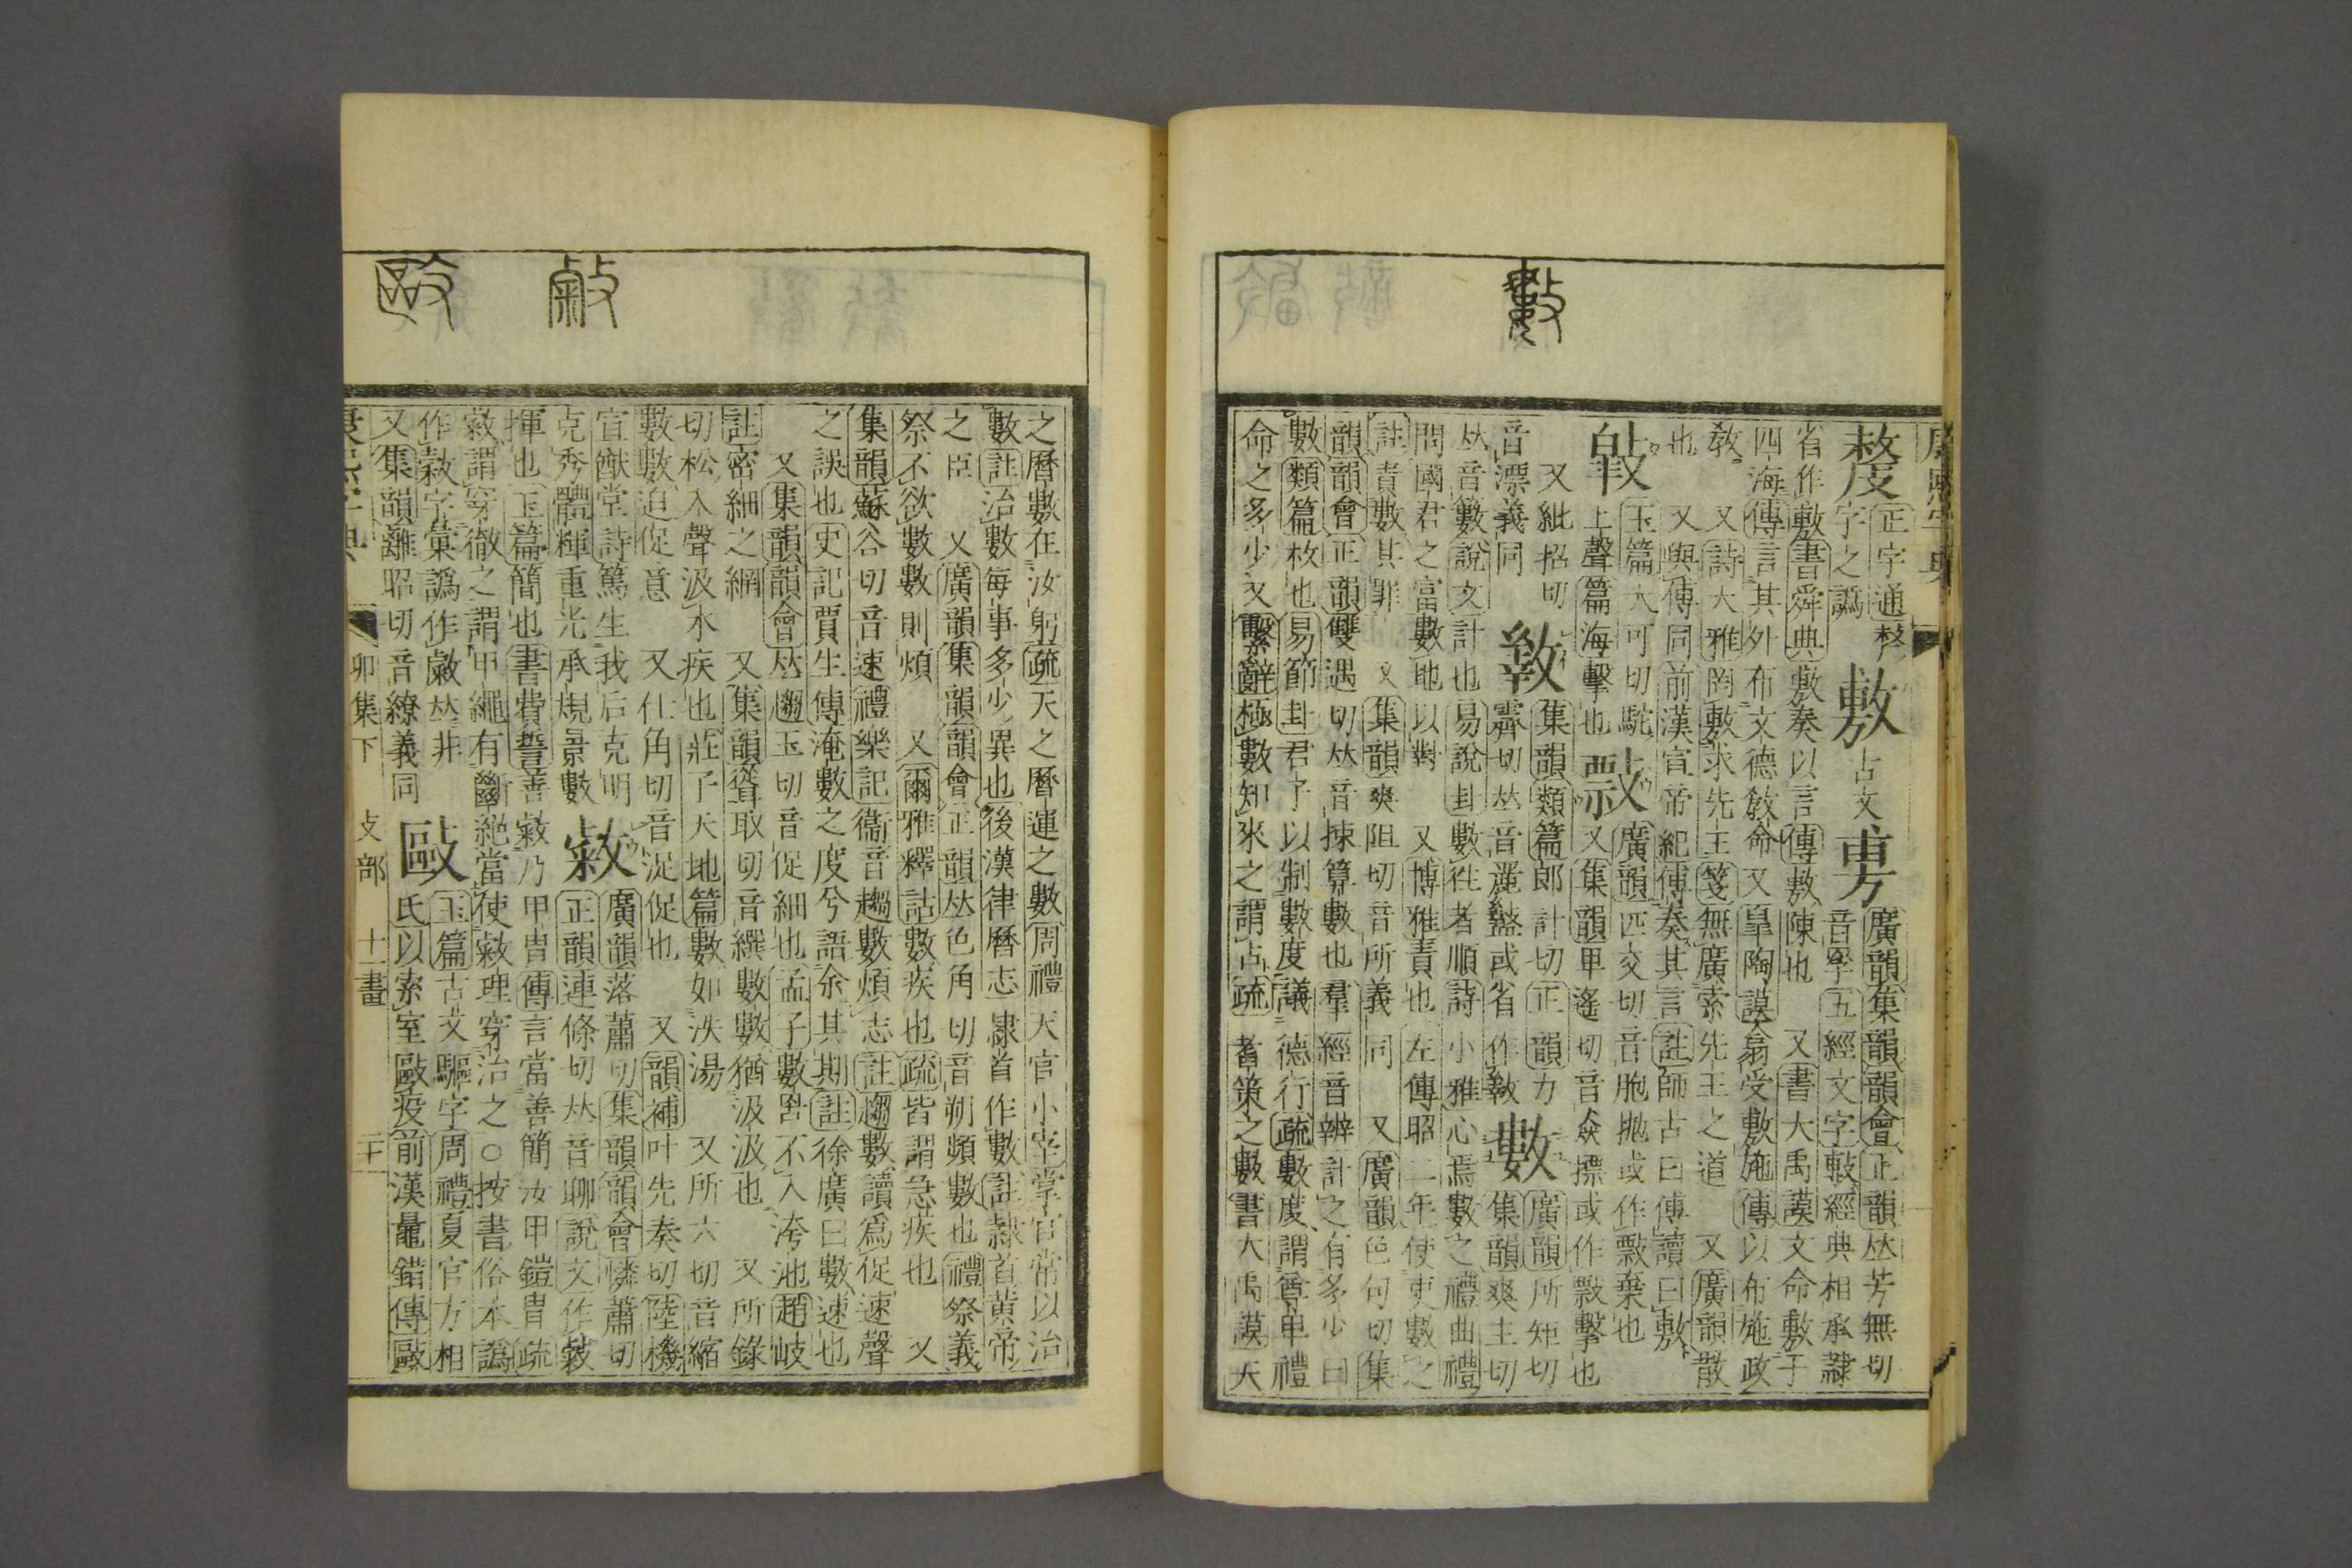 數
正字通嫠
字之譌
敷
古文
旉
廣韻集韻韻會正韻𠀤芳無切
音孚五經文字敷經典相承隸
省作敷書舜典敷奏以言傳敷陳也 又書大禹謨文命敷于
四海傳言其外布文德敎命又皐陶謨翕受敷施傳以布施政
敎 又詩大雅罔敷求先王箋無廣索先王之道 又廣韻散
也 又與傅同前漢宣帝紀傅奏其言註師古曰傅讀曰敷
玉篇大可切駝
上聲篇海擊也
廣韻匹交切音胞抛或作敺棄也
又集韻甲遙切音猋摽或作㩠擊也
又紕招切
音漂義同
集韻類篇郎計切正韻力
霽切𠀤音麗盭或省作
數
廣韻所矩切
集韻爽主切
𠀤音籔說文計也易說卦數往者順詩小雅心焉數之禮曲禮
問國君之富數地以對 又博雅責也左傳昭二年使吏數之
註責數其罪 又集韻爽阻切音所義同 又廣韻色句切集
韻韻會正韻雙遇切𠀤音捒算數也羣經音辨計之有多少曰
數類篇枚也易節卦君子以制數度議德行疏數度謂尊卑禮
命之多少又繫辭極數知來之謂占疏蓍策之數書大禹謨天
敹
敺
之曆數在汝躬疏天之曆運之數周禮天官小宰掌官常以治
數註治數每事多少異也後漢律曆志隷首作數註隷首黃帝
之臣 又廣韻集韻韻會正韻𠀤色角切音朔頻數也禮祭義
祭不欲數數則煩 又爾雅釋詁數疾也疏皆謂急疾也 又
集韻蘇谷切音速禮樂記衞音趨數煩志註趨數讀爲促速聲
之誤也史記賈生傳淹數之度兮語余其期註徐廣曰數速也
又集韻韻會𠀤趨玉切音促細也孟子數罟不入洿池趙岐
註密細之網 又集韻聳取切音縲數數猶汲汲也 又所錄
切松入聲汲水疾也莊子天地篇數如泆湯 又所六切音縮
數數迫促意 又仕角切音浞促也 又韻補叶先奏切陸機
宣猷堂詩篤生我后克明克秀體輝重光承規景數
敹
廣韻落蕭切集韻韻會憐蕭切
正韻連條切𠀤音聊說文作敹
揮也玉篇簡也書費誓善敹乃甲冑傳言當善簡汝甲鎧冑疏
敹謂穿徹之謂甲繩有斷絕當使敹理穿治之○按書俗本譌
作敹字彙譌作𠀤非
又集韻離昭切音繚義同
敺
玉篇古文驅字周禮夏官方相
氏以索室敺疫前漢鼂錯傳敺
康熙字典 卯集下 攴部 十一畫 二十